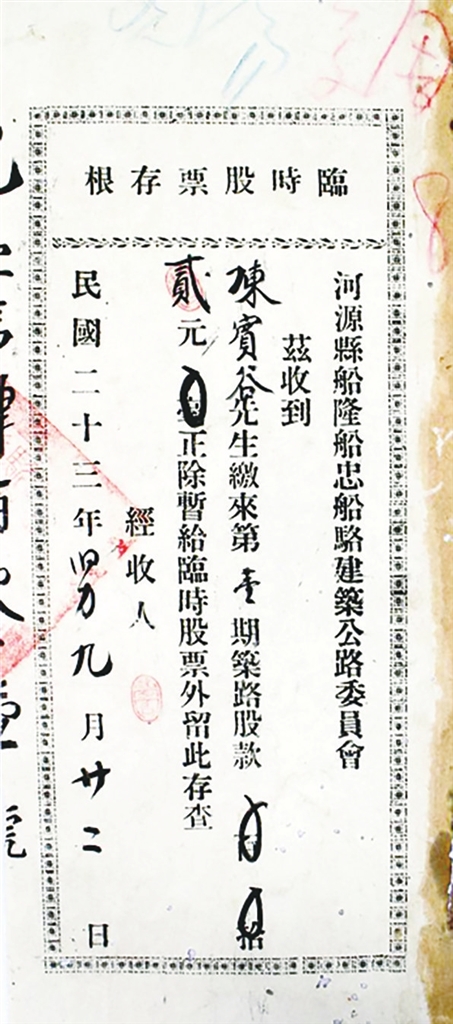 臨時股票存根
河源縣船隆船忠船駱建築公路委員會
茲收到
陳賓谷先生繳來第壹期築路股款
貳元正除暫給臨時股票外留此存查
經收人
民國二十三年九月廿二日
號